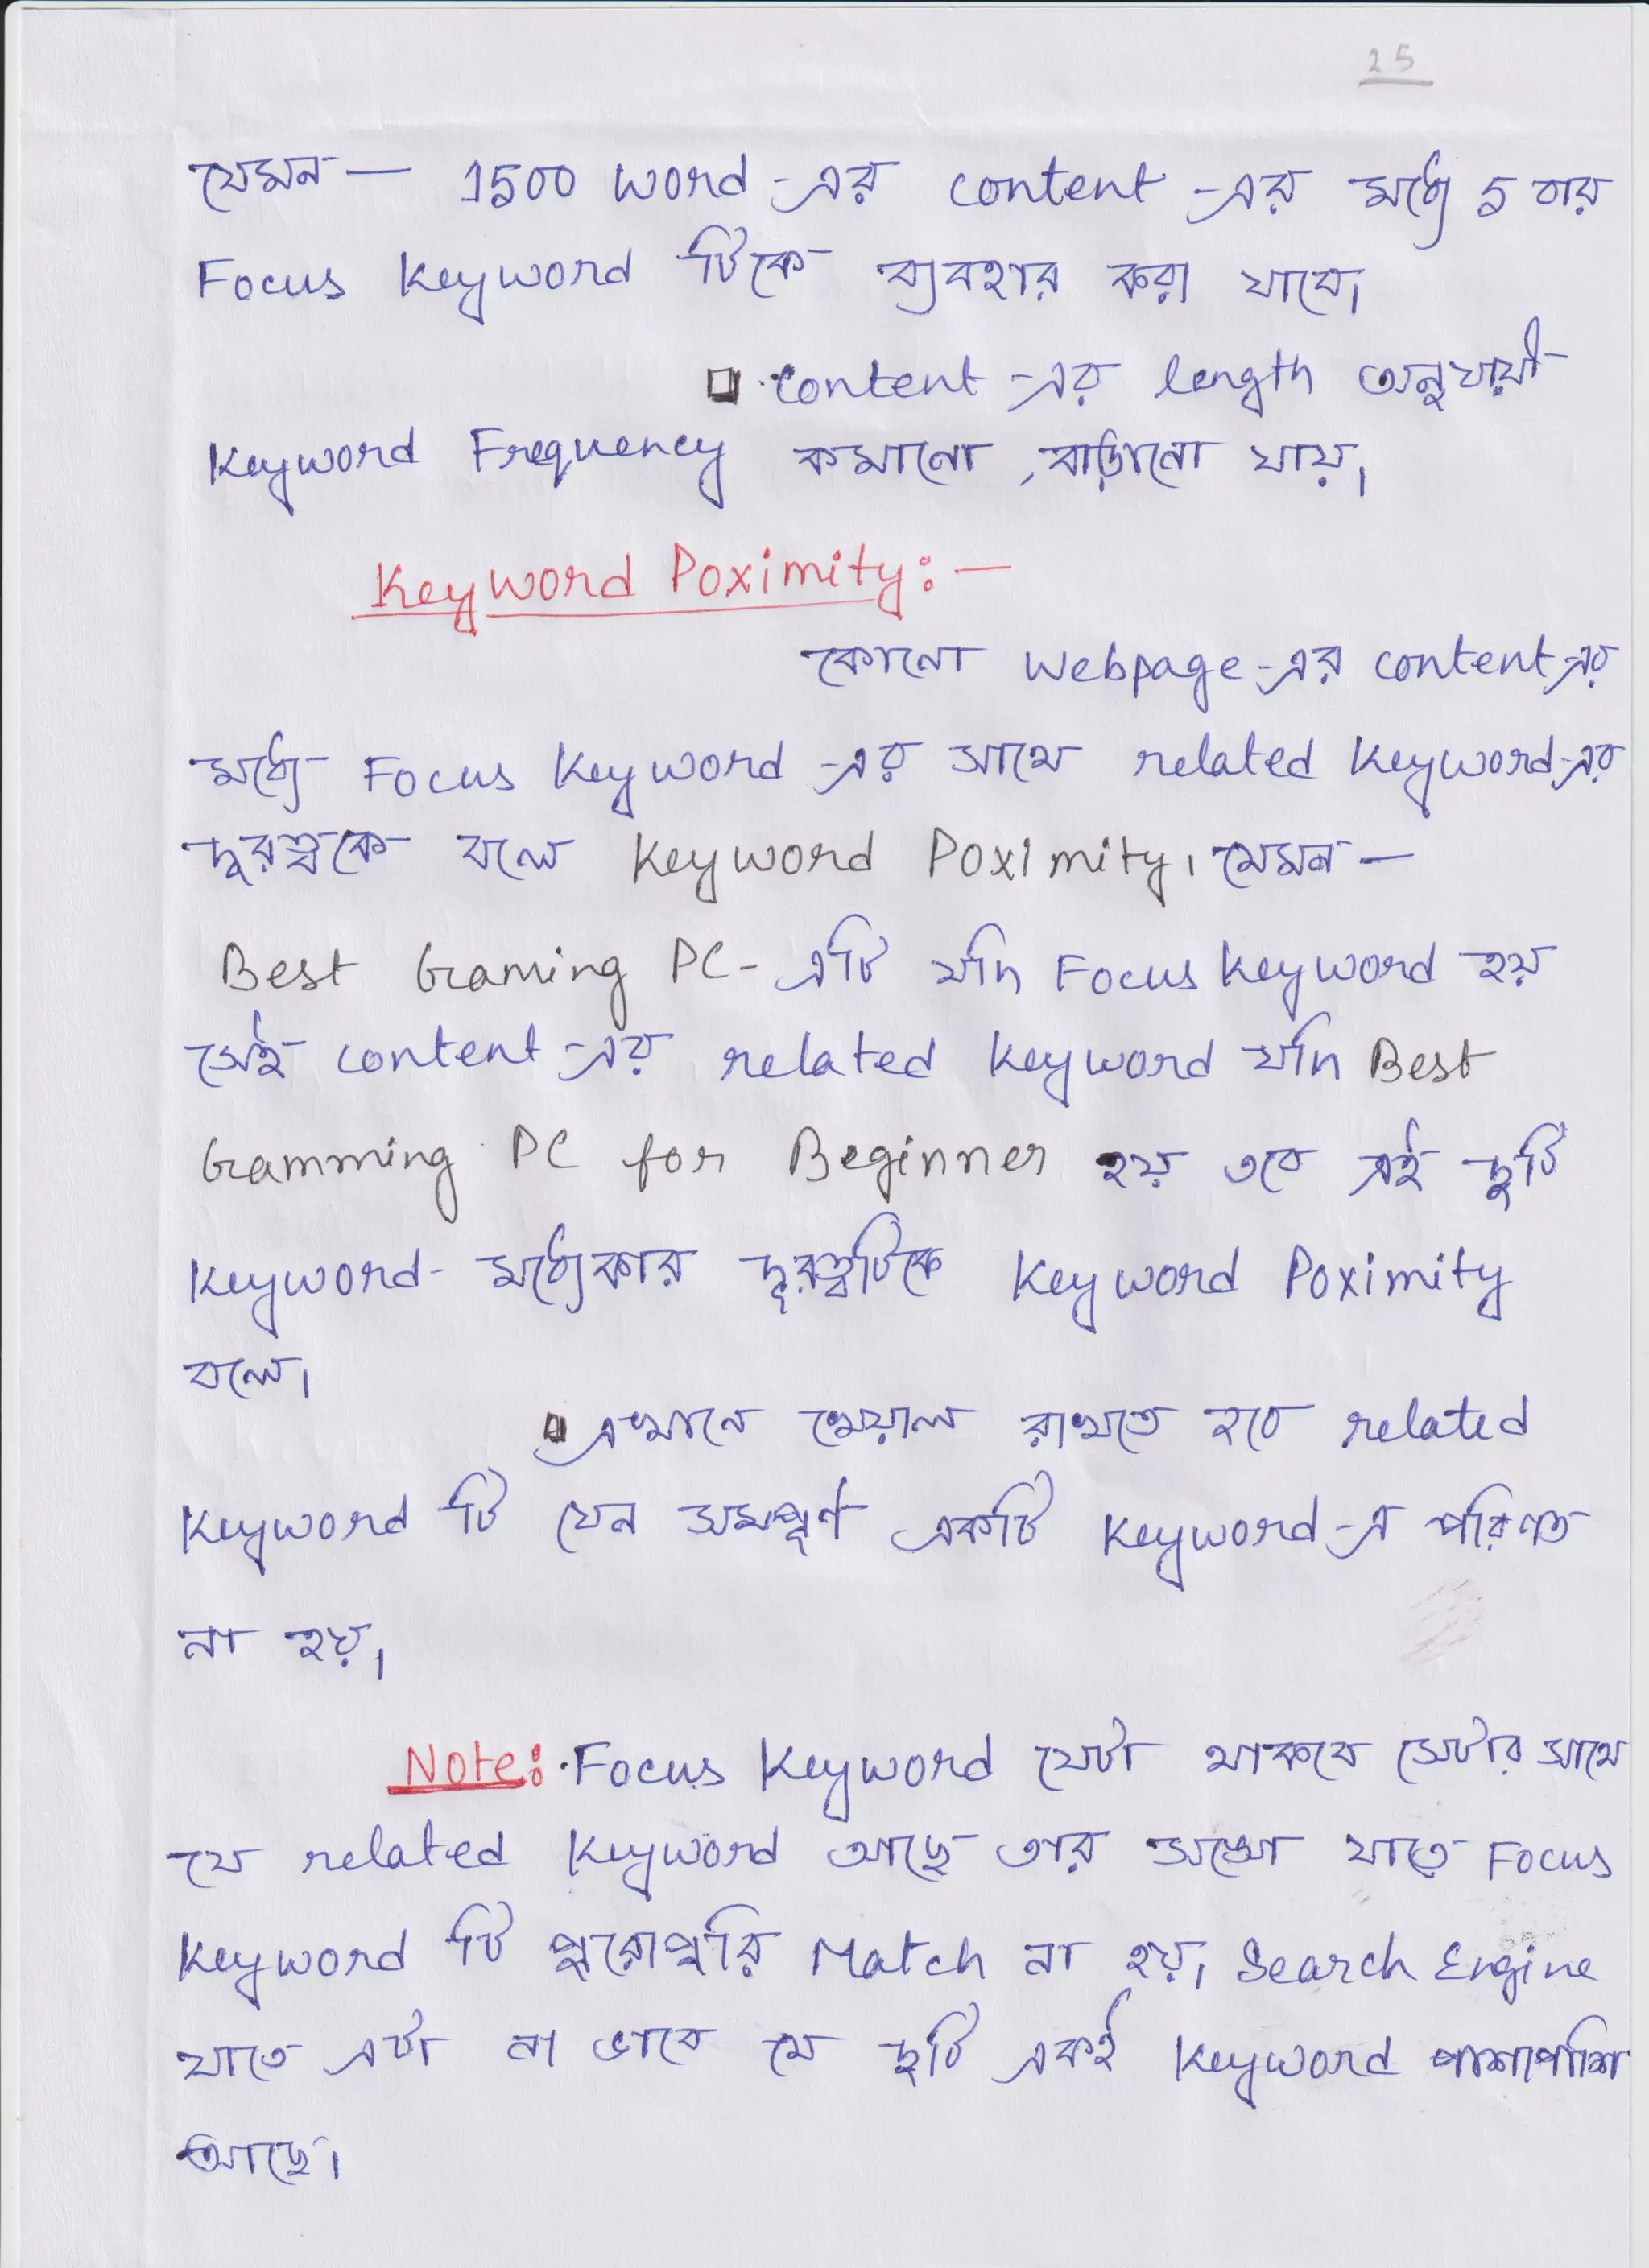 25
যেমন — 1500 word -এর content -এর মধ্যে 5 বার
Focus Keyword টিকে ব্যবহার করা যাবে।
content -এর length অনুযায়ী
Keyword Frequency কমানো, বাড়ানো যায়।
Keyword Poximity: —
কোনো webpage-এর content-এর
মধ্যে Focus Keyword -এর সাথে related Keyword-এর
দূরত্বকে বলে Keyword Poximity। যেমন —
Best Gaming PC - এটি যদি Focus Keyword হয়
সেই content -এর related Keyword যদি Best
Gamming PC for Beginner হয় তবে এই দুটি
Keyword- মধ্যেকার দূরত্বটিকে Keyword Poximity
বলে।
এখানে খেয়াল রাখতে হবে related
Keyword টি যেন সমপূর্ণ একটি Keyword-এ পরিণত
না হয়।
Note: Focus Keyword যেটা থাকবে সেটার সাথে
যে related Keyword আছে তার সঙ্গে যাতে Focus
Keyword টি পুরোপুরি Match না হয়। Search Engine
যাতে এটা না ভাবে যে দুটি একই Keyword পাশাপাশি
আছে।